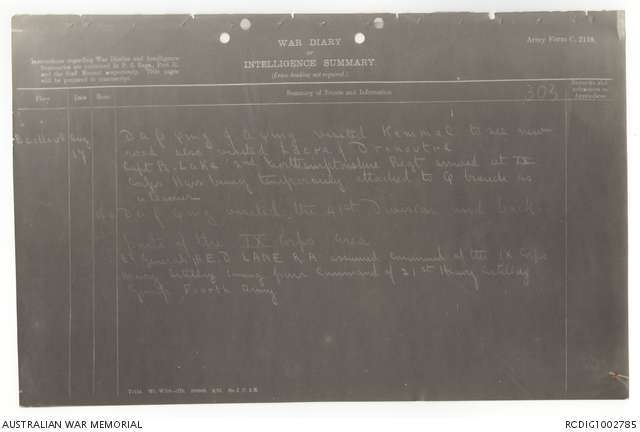 WAR DIARY
OR
INTELLIGENCE SUMMARY
(Erase heading not required.)
Army Form C. 2118.
Instructions regarding War Diaries and Intelligence
Summaries are contained in F. S. Regs., Part II.
and the Staff Manual respectively. Title pages
will be prepared in manuscript.
Place Date Hour Summary of Events and Information Remarks and references to Appendices
303
Bailleul Aug 17 visited Kemmel to see new
road also visited Locre & Dranoutre
Capt R. Lake 2nd Northamptonshire Regt arrived at IX
Corps Hqrs being temporarily attached to Q branch as
a learner
visited the 41st Division and back
parts of the IX Corps area
General H.E.D LANE R.A assumed command of the IX Corps
Heavy Artillery coming from Command of 21st Heavy Artillery
Group Fourth Army
AUSTRALIAN WAR MEMORIAL
RCDIG1002785